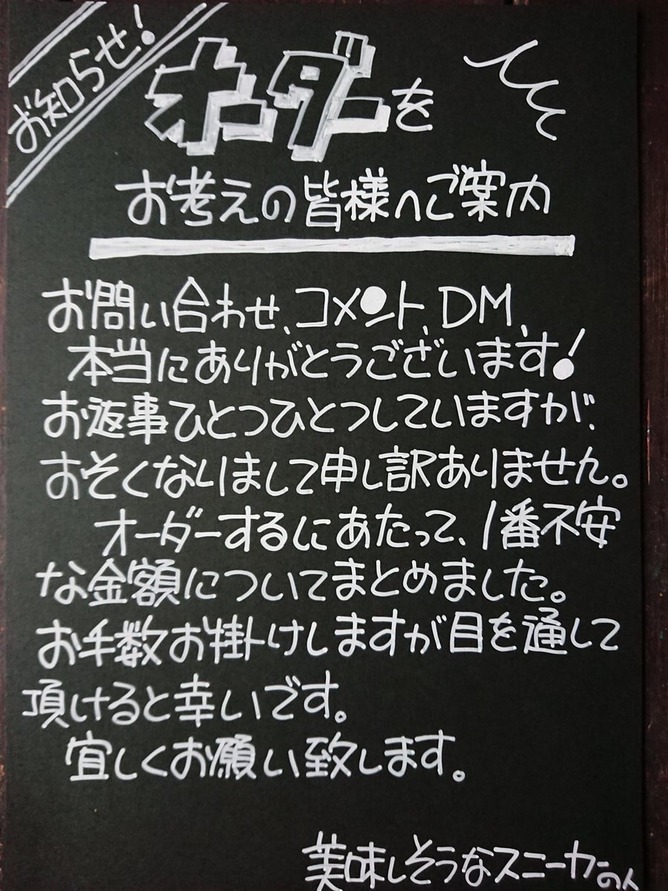 お知らせ!
オーダーを
お考えの皆様へご案内
お問い合わせ、コメント、DM、
本当にありがとうございます!
お返事ひとつひとつしていますが、
おそくなりまして申し訳ありません。
オーダーするにあたって、1番不安
な金額についてまとめました。
お手数お掛けしますが目を通して
頂けると幸いです。
宜しくお願い致します。
美味しそうなスニーカーの人